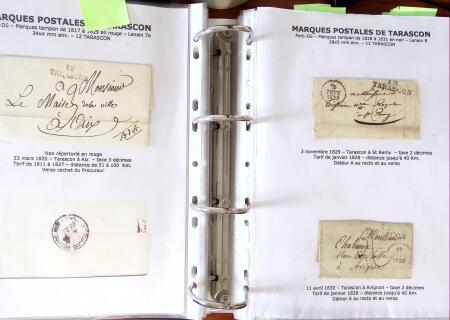 MARQUES POSTALES DE TARASCON
Port-DG – Marques tampon de 1817 à 1829 en rouge – Lenain 7a
34x4 mm env. – 12 TARASCON
12
TARASCON
A Monsieur
Le Maire de la ville
à Aix
Non répertorié en rouge
23 mars 1820 – Tarascon à Aix – taxe 3 décimes
Tarif de 1811 à 1827 – distance de 51 à 100 Km.
Verso cachet du Procureur
MARQUES POSTALES DE TARASCON
Port-DG – Marques tampon de 1828 à 1831 en noir – Lenain 8
38x5 mm env. – 12 TARASCON
12
TARASCON
3 novembre 1829 – Tarascon à St Remy – taxe 2 décimes
Tarif de janvier 1828 – distance jusqu'à 40 Km.
Dateur A au recto et au verso
Monsieur
à Avignon
11 avril 1830 – Tarascon à Avignon – taxe 2 décimes
Tarif de janvier 1828 – distance jusqu'à 40 Km.
Dateur A au recto et au verso